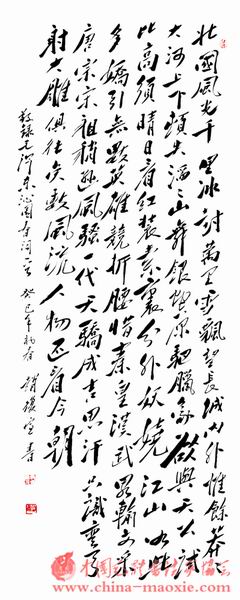 北國風光千里冰封萬里雪飄望長城內外惟餘莽莽
大河上下頓失滔滔山舞銀蛇原馳臘象欲與天公試
比高須晴日看紅裝素裹分外妖嬈江山如此
多嬌引無數英雄競折腰惜秦皇漢武略輸文采
唐宗宋祖稍遜風騷一代天驕成吉思汗只識彎弓
射大雕俱往矣數風流人物還看今朝
敬錄毛澤東沁園春詞一首 癸巳年初春 書
www.china-maoxie.com